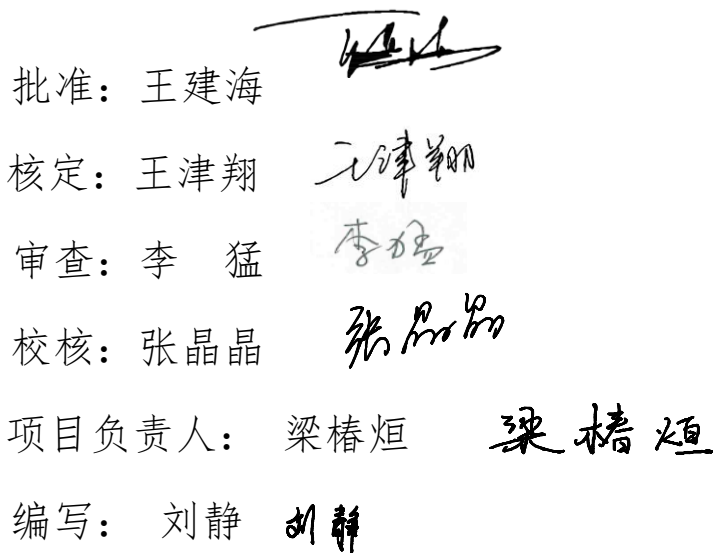 批准：王建海
核定：王津翔 王津翔
审查：李　猛 李猛
校核：张晶晶 张晶晶
项目负责人： 梁椿烜 梁椿烜
编写： 刘静 刘静